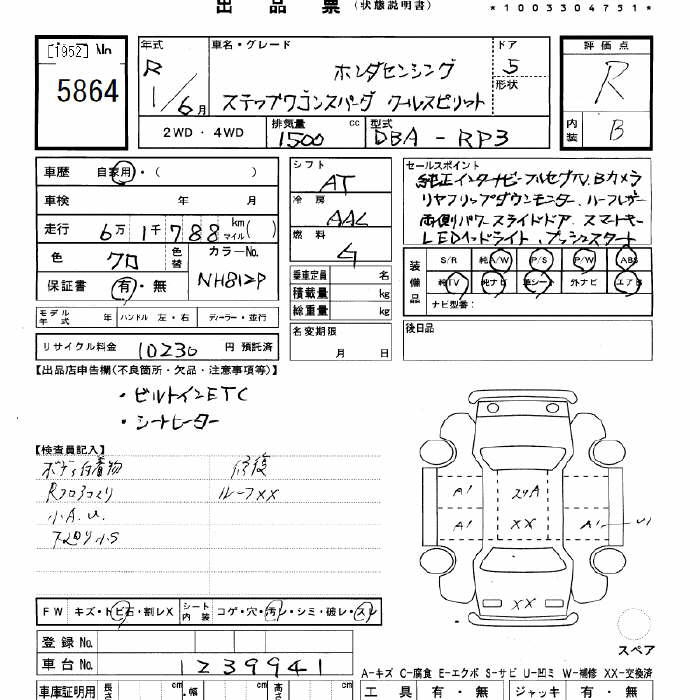 出 品 票 (状態説明書)
*1003304751*
[1952] No
5864
年式 R 1/6月
車名・グレード ホンダセンシング
ステップワゴンスパーダ クールスピリット
ドア 5
形状
2WD・4WD
排気量 1500 cc
型式 DBA-RP3
評価点 R
内装 B
車歴 自家用・( )
車検 年 月
走行 6万1千788 km マイル( )
色 クロ 色替
カラーNo. NH812P
保証書 有・無
シフト AT
冷房 AAC
燃料
乗車定員 名
積載量 kg
総重量 kg
名変期限 月 日
セールスポイント
純正インターナビ フルセグTV、Bカメラ
リヤフリップダウンモニター、ハーフレザー
両側パワースライドドア、スマートキー
LEDヘッドライト、プッシュスタート
装備品 S/R 純A/W P/S P/W ABS
純TV 純ナビ 革シート 外ナビ エアB
ナビ型番:
モデル年式 年 ハンドル 左・右 ディーラー・並行
リサイクル料金 10230 円 預託済
後日品
【出品店申告欄(不良箇所・欠品・注意事項等)】
・ビルトインETC
・シートヒーター
【検査員記入】
修復
ルーフXX
小A.U.
A1
A1
XX
A1
U1
XX
スペア
FW キズ・トビ石・割レX シート内装 コゲ・穴・汚レ・シミ・破レ・スレ
登録 No.
車台 No. 1239941
A-キズ C-腐食 E-エクボ S-サビ U-凹ミ W-補修 XX-交換済
車庫証明用 長さ cm ・幅 cm 高さ cm
工具 有・無 ジャッキ 有・無